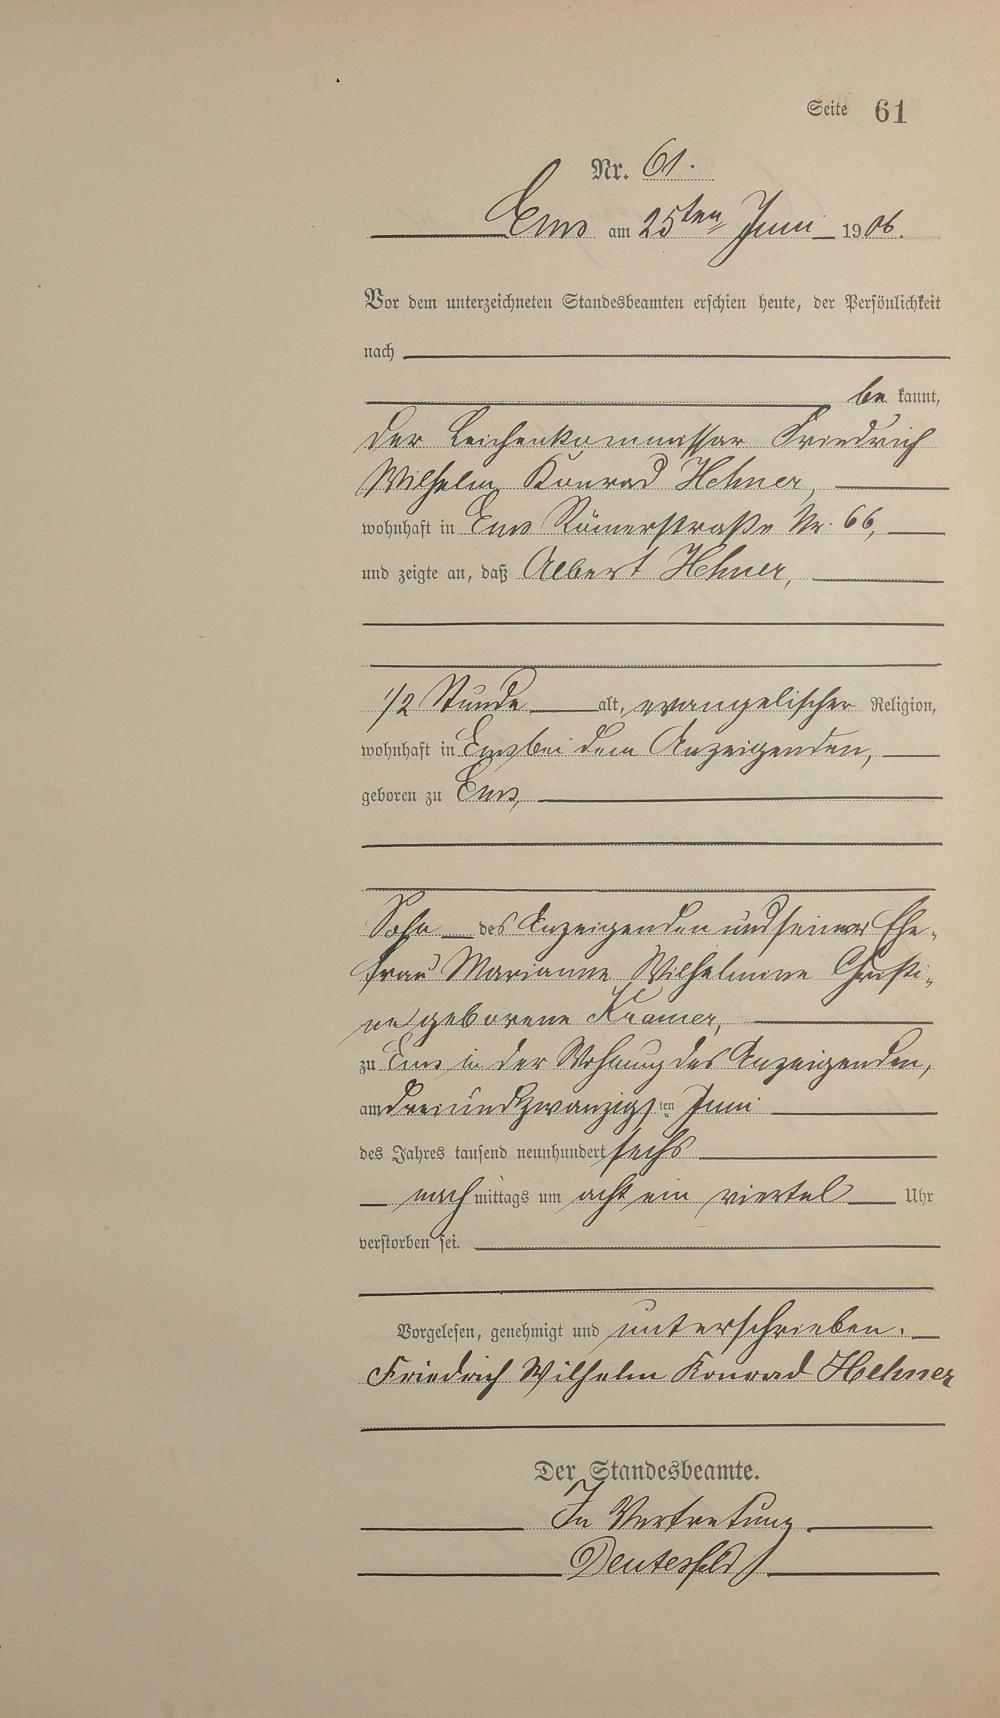 Seite 61
Nr. 61.
Ems am 25ten Juni 1906.
Vor dem unterzeichneten Standesbeamten erschien heute, der Persönlichkeit
nach
be kannt,
der Leichenkommissar Friedrich
Wilhelm Konrad Hehner,
wohnhaft in Ems Römerstraße Nr. 66,
und zeigte an, daß Albert Hehner,
1/2 Stunde alt, evangelischer Religion,
wohnhaft in Ems bei dem Anzeigenden,
geboren zu Ems,
Sohn des Anzeigenden und seiner Ehe-
frau Marianne Wilhelmine Christi-
ne geborene Kramer,
zu Ems in der Wohnung des Anzeigenden,
am dreiundzwanzigsten Juni
des Jahres tausend neunhundert sechs
nach mittags um acht ein viertel Uhr
verstorben sei.
Vorgelesen, genehmigt und unterschrieben.
Friedrich Wilhelm Konrad Hehner
Der Standesbeamte.
In Vertretung